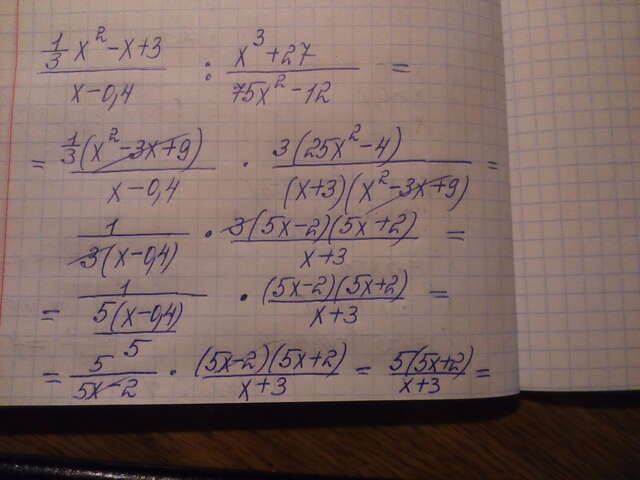 (1/3 x² - x + 3)/(x - 0,4) : (x³ + 27)/(75x² - 12) =
= (1/3 (x² - 3x + 9))/(x - 0,4) · (3(25x² - 4))/((x + 3)(x² - 3x + 9)) =
1/(3(x - 0,4)) · (3(5x - 2)(5x + 2))/(x + 3) =
= 1/((5(x - 0,4))/5) · ((5x - 2)(5x + 2))/(x + 3) =
= 5/(5x - 2) · ((5x - 2)(5x + 2))/(x + 3) = (5(5x + 2))/(x + 3) =